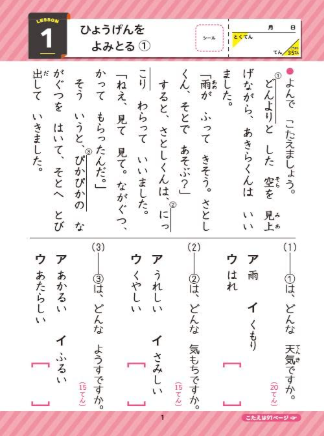 LESSON
1
ひょうげんを
よみとる ①
シール
月 日
とくてん
てん
35てん
● よんで こたえましょう。
①どんよりと した 空を 見上
げながら、あきらくんは いい
ました。
「雨が ふって きそう。さとし
くん、そとで あそぶ？」
すると、さとしくんは、②にっ
こり わらって いいました。
「ねえ、見て 見て。ながぐつ、
かって もらったんだ。」
そう いうと、③ぴかぴかの な
がぐつを はいて、そとへ とび
出して いきました。
(1) ――①は、どんな 天気ですか。
(20てん)
ア 雨 イ くもり
ウ はれ
［ ］
(2) ――②は、どんな 気もちですか。
(15てん)
ア うれしい イ さみしい
ウ くやしい
［ ］
(3) ――③は、どんな ようすですか。
(15てん)
ア あかるい イ ふるい
ウ あたらしい
［ ］
1
こたえは91ページ